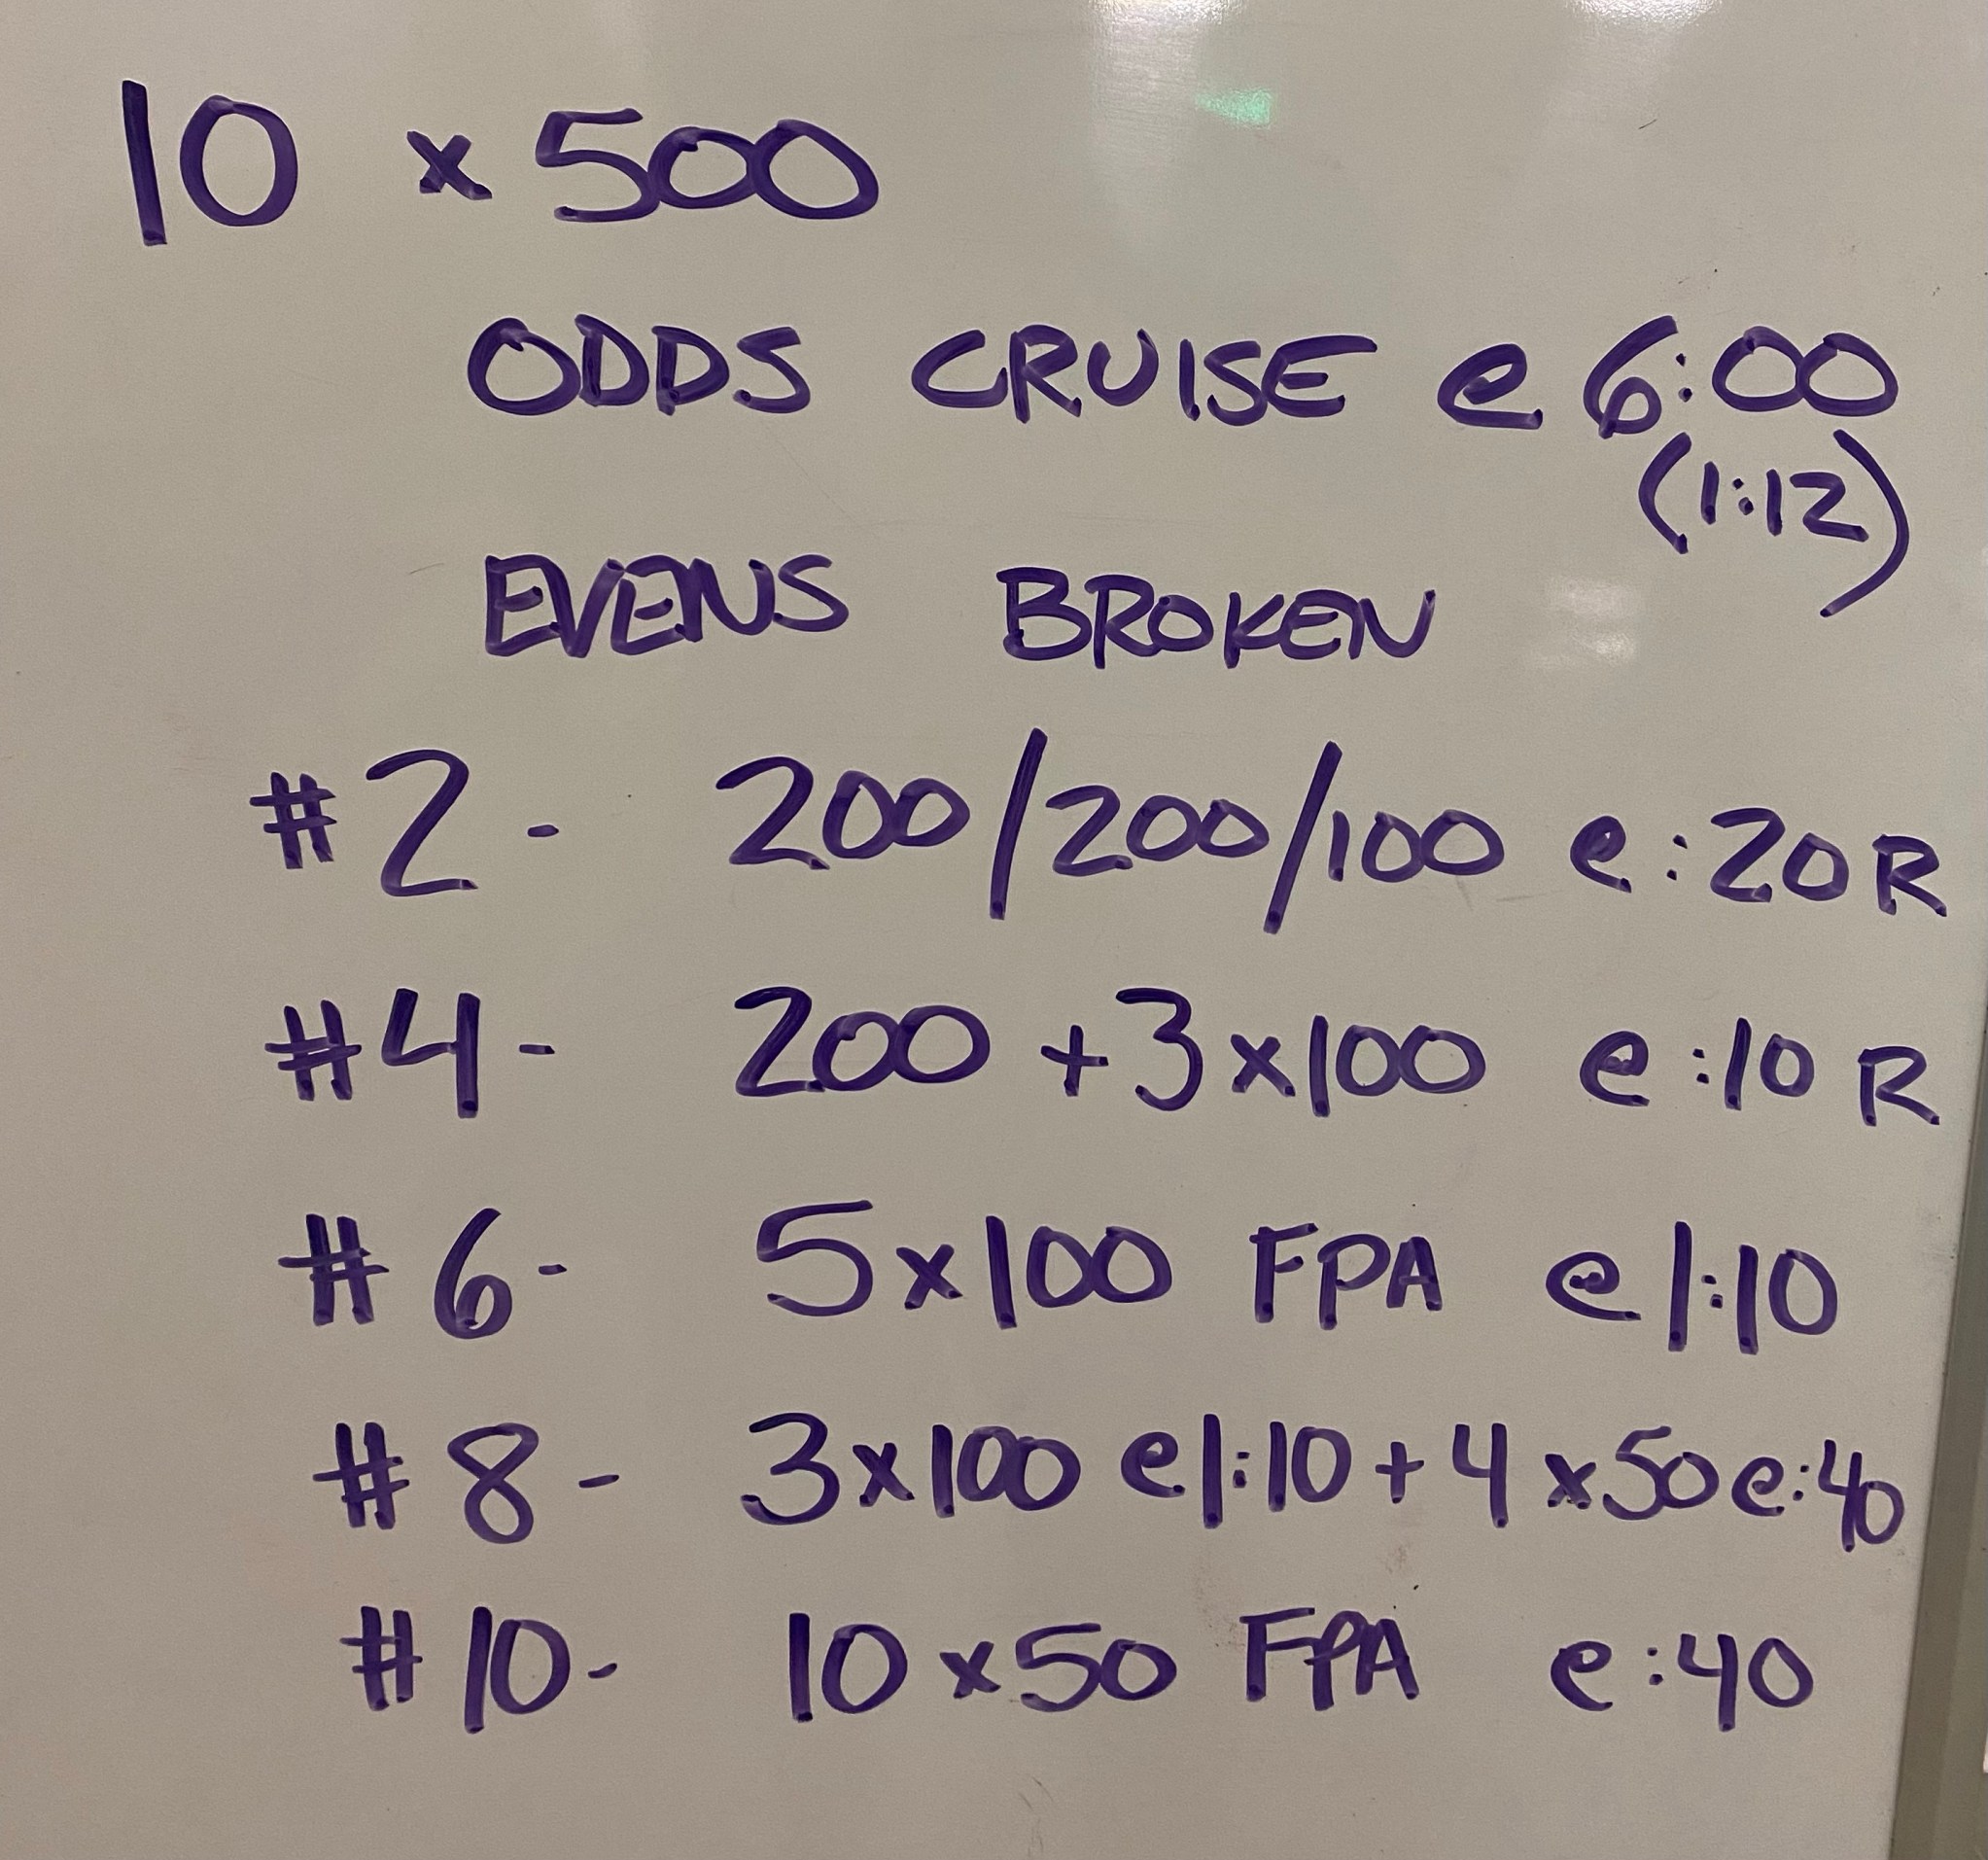 10 x 500
ODDS CRUISE @ 6:00
(1:12)
EVENS BROKEN
#2 - 200/200/100 @ :20 R
#4 - 200 + 3x100 @ :10 R
#6 - 5x100 FPA @ 1:10
#8 - 3x100 @ 1:10 + 4x50 @ :40
#10 - 10x50 FPA @ :40